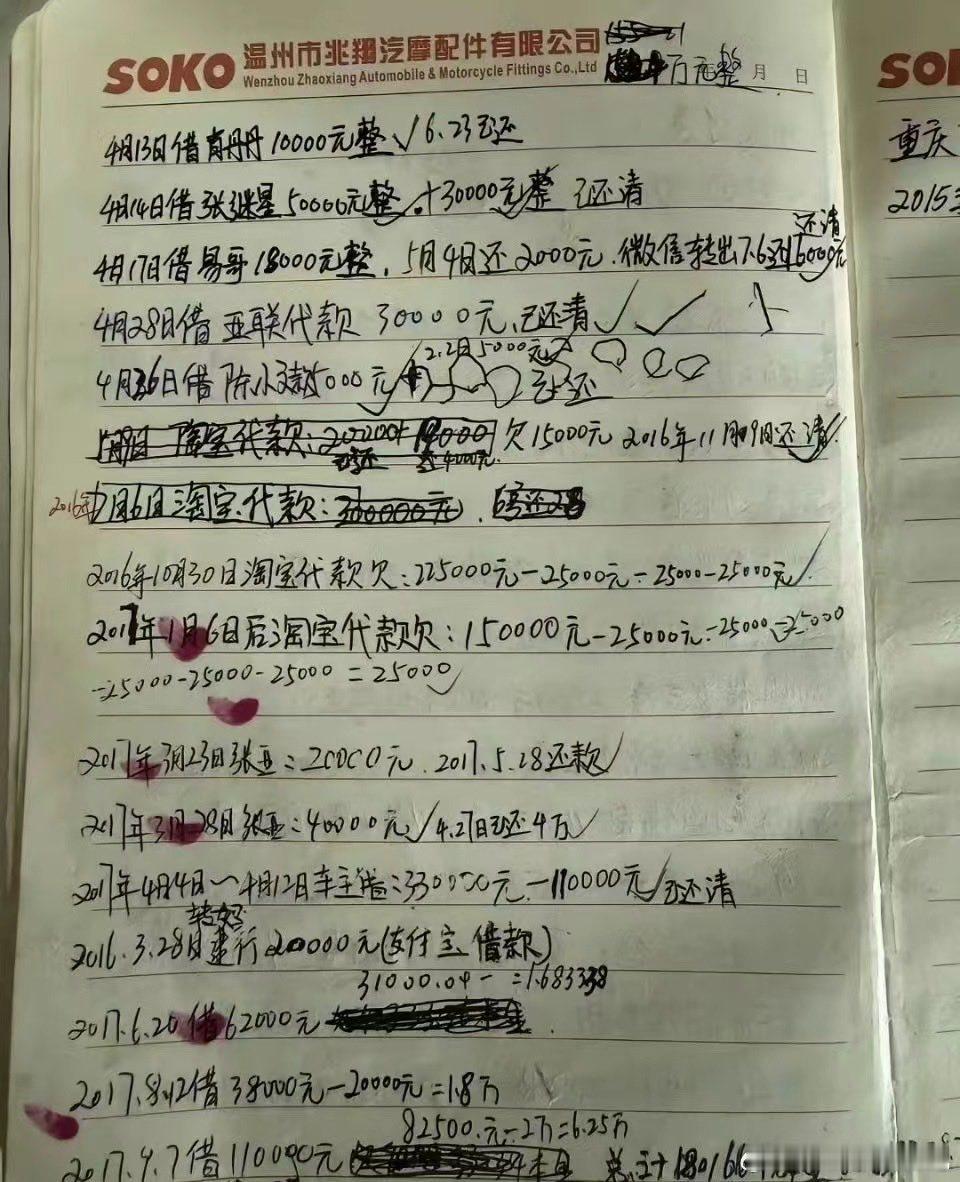 SOKO 温州市兆翔汽摩配件有限公司
Wenzhou Zhaoxiang Automobile & Motorcycle Fittings Co.,Ltd
万元整 月 日
SO
重庆
2015
4月13日借肖丹丹10000元整✓6.23已还
4月14日借张继星50000元整✓+30000元整 已还清
还清
4月17日借易哥18000元整,5月4日还2000元.微信转出7.6还16000元
4月28日借亚联代款 30000元,已还清✓✓
2.2月5000元
4月26日借陈小 5000元 已还
淘宝代款: 欠15000元 2016年11月09日还清✓
已还 还4000元
2016年7月6日淘宝代款:300000元.
2016年10月30日淘宝代款欠:225000元-25000元-25000-25000元✓
2017年1月6日后淘宝代款欠:150000元-25000元-25000-25000
-25000-25000-25000=25000✓
2017年3月23日张亚:20000元.2017.5.28还款✓
2017年3月28日张亚:40000元✓4.27日已还4万✓
2017年4月4日~4月12日车主 :330000元-110000元✓已还清
2016.3.28日建行20000元(支付宝借款)
31000.04- =1.683338
2017.6.20借62000元
2017.8.12借38000元-20000元=1.8万
82500.元-2万=6.25万
2017.9.7借110000元 总计180166